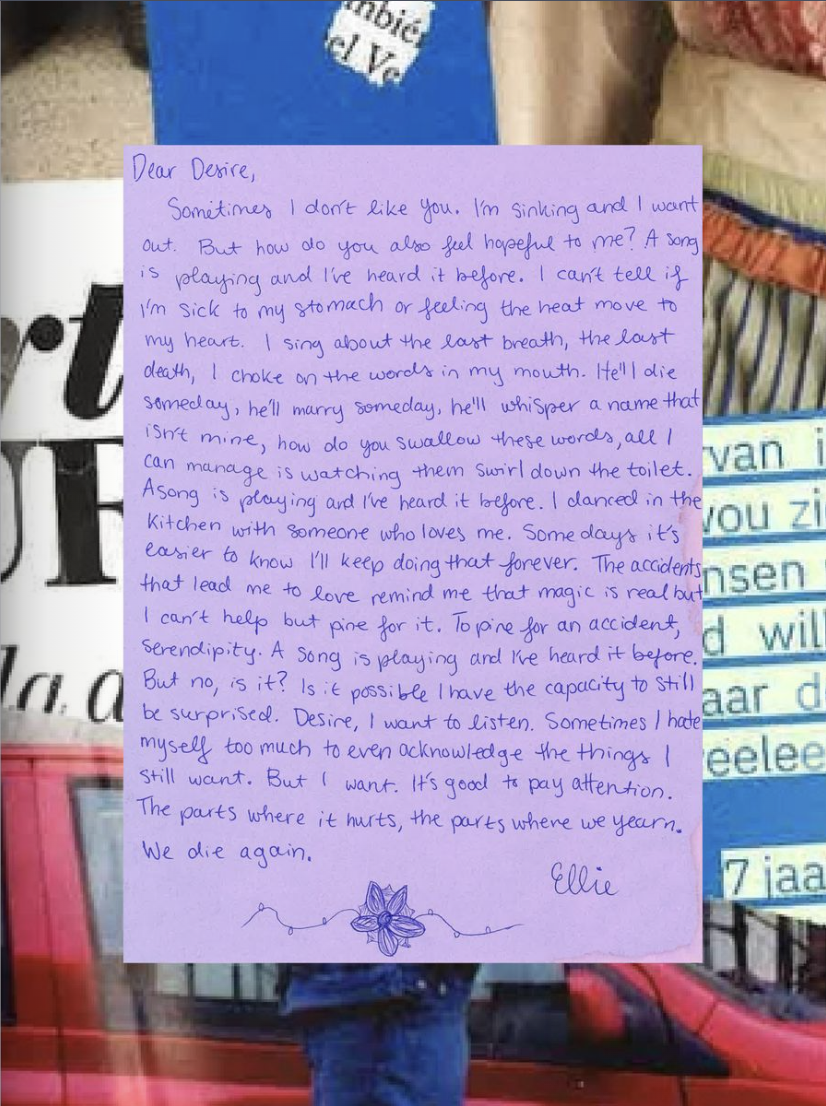 también
el Ve
Dear Desire,
Sometimes I don't like you. I'm sinking and I want
out. But how do you also feel hopeful to me? A song
is playing and I've heard it before. I can't tell if
I'm sick to my stomach or feeling the heat move to
my heart. I sing about the last breath, the last
death, I choke on the words in my mouth. He'll die
someday, he'll marry someday, he'll whisper a name that
isn't mine, how do you swallow these words, all I
can manage is watching them swirl down the toilet.
A song is playing and I've heard it before. I danced in the
kitchen with someone who loves me. Some days it's
easier to know I'll keep doing that forever. The accidents
that lead me to love remind me that magic is real but
I can't help but pine for it. To pine for an accident,
serendipity. A song is playing and I've heard it before.
But no, is it? Is it possible I have the capacity to still
be surprised. Desire, I want to listen. Sometimes I hate
myself too much to even acknowledge the things I
still want. But I want. It's good to pay attention.
The parts where it hurts, the parts where we yearn.
We die again.
Ellie
rt
UF
la, a
van i
vou zi
nsen
d wil
aar d
eelee
7 jaa